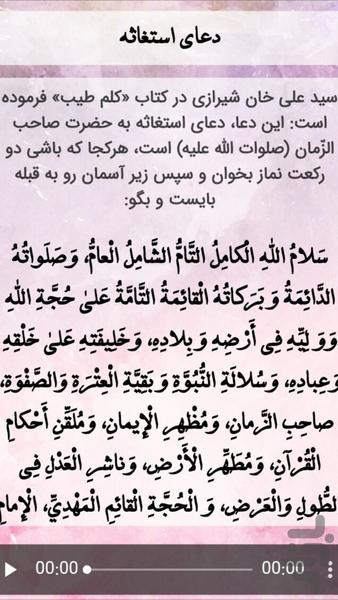 دعای استغاثه
سید علی خان شیرازی در کتاب «کلم طیب» فرموده
است: این دعا، دعای استغاثه به حضرت صاحب
الزّمان (صلوات الله علیه) است، هرکجا که باشی دو
رکعت نماز بخوان و سپس زیر آسمان رو به قبله
بایست و بگو:
سَلامُ اللهِ الْكامِلُ التّامُّ الشّامِلُ الْعامُّ، وَصَلَواتُهُ
الدّائِمَةُ وَبَرَكاتُهُ الْقائِمَةُ التّامَّةُ عَلىٰ حُجَّةِ اللهِ
وَوَلِيِّهِ فِى أَرْضِهِ وَبِلادِهِ، وَخَلِيفَتِهِ عَلىٰ خَلْقِهِ
وَعِبادِهِ، وَسُلالَةِ النُّبُوَّةِ وَبَقِيَّةِ الْعِتْرَةِ وَالصَّفْوَةِ،
صاحِبِ الزَّمانِ، وَمُظْهِرِ الْإِيمانِ، وَمُلَقِّنِ أَحْكامِ
الْقُرْآنِ، وَمُطَهِّرِ الْأَرْضِ، وَناشِرِ الْعَدْلِ فِى
الطُّولِ وَالْعَرْضِ، وَ الْحُجَّةِ الْقائِمِ الْمَهْدِيِّ، الْإِمامِ
00:00 00:00